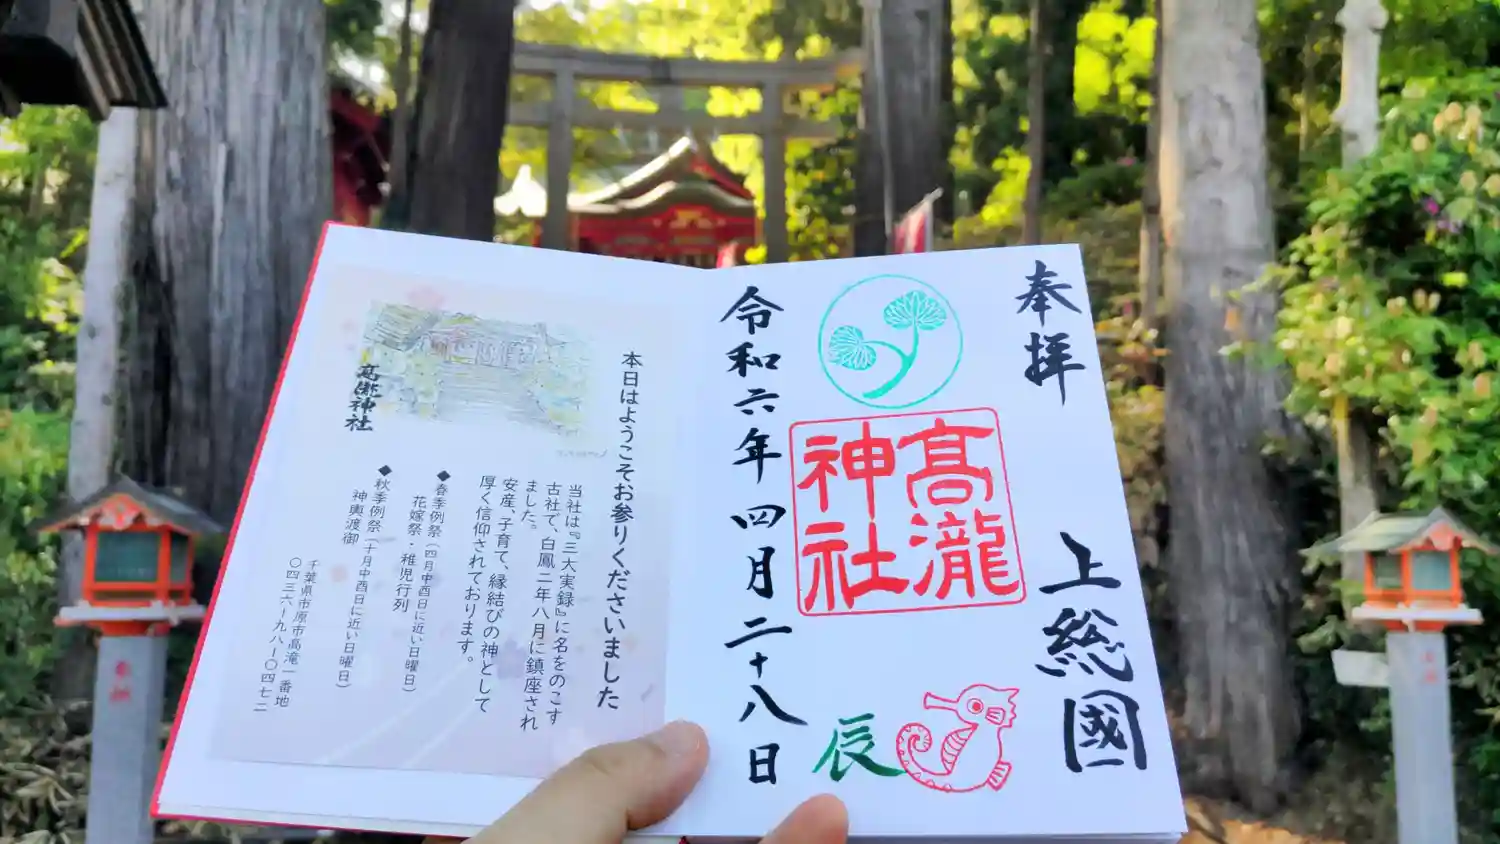 奉拝
上総國
髙瀧
神社
令和六年四月二十八日
辰
本日はようこそお参りくださいました
髙瀧神社
当社は『三大実録』に名をのこす
古社で、白鳳二年八月に鎮座され
ました。
安産、子育て、縁結びの神として
厚く信仰されております。
◆春季例祭(四月中酉日に近い日曜日)
花嫁祭・稚児行列
◆秋季例祭(十月中酉日に近い日曜日)
神輿渡御
千葉県市原市高滝一番地
〇四三六ー九八ー〇四七二